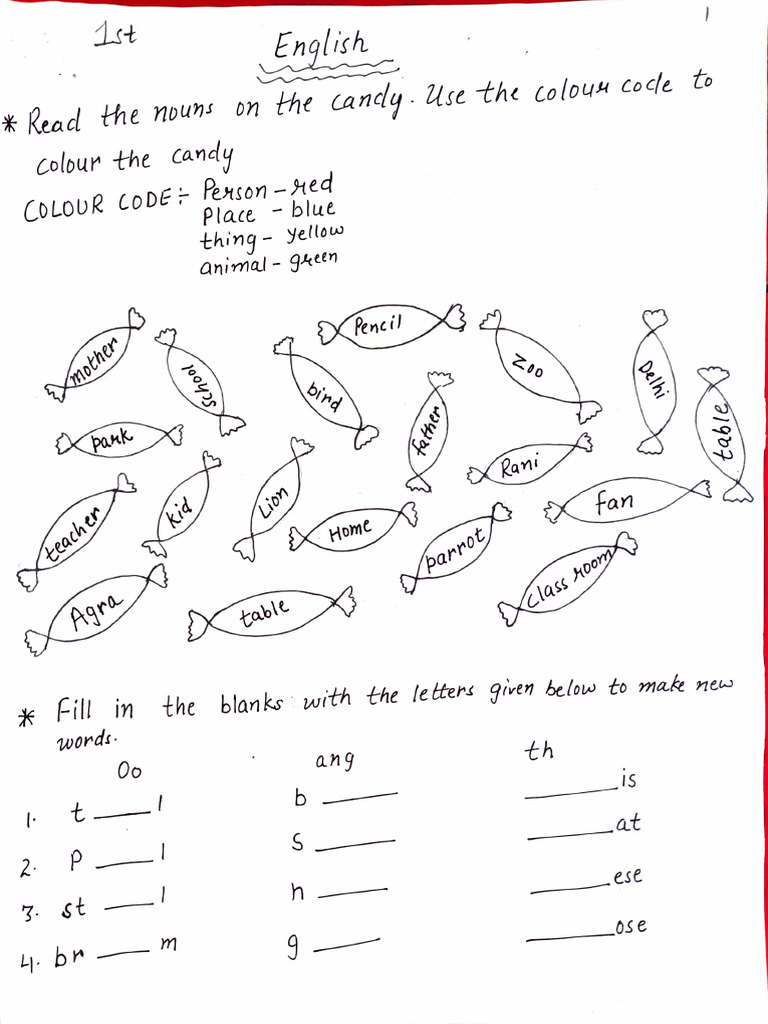 1
1st
English
* Read the nouns on the candy. Use the colour code to
colour the candy
COLOUR CODE:- Person - red
Place - blue
thing - yellow
animal - green
mother
school
bird
Pencil
Zoo
Delhi
table
park
father
Rani
teacher
kid
Lion
Home
parrot
fan
Agra
table
Class room
* Fill in the blanks with the letters given below to make new
words.
Oo ang th
1. t ____ l b ____ ____ is
2. P ____ l S ____ ____ at
3. st ____ l h ____ ____ ese
4. br ____ m g ____ ____ ose